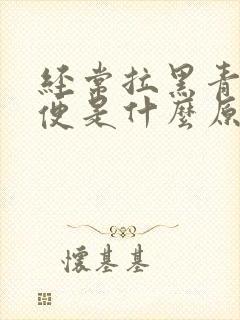 經常拉黑青
便是什麼原
懷基基